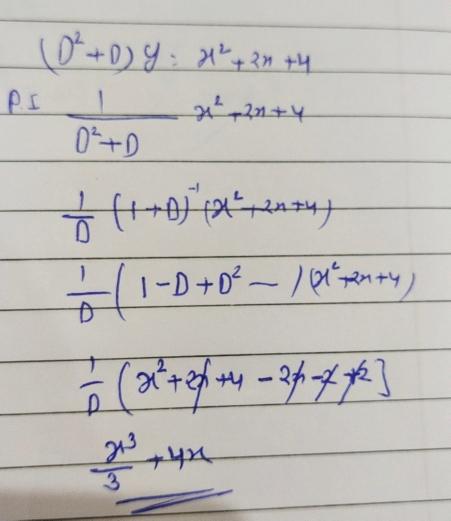 (D²+D) y = x²+2x+4
P.I 1/(D²+D) x²+2x+4
1/D (1+D)⁻¹ (x²+2x+4)
1/D (1-D+D² — ) (x²+2x+4)
1/D (x²+2x+4-2x-2+2]
x³/3 +4x